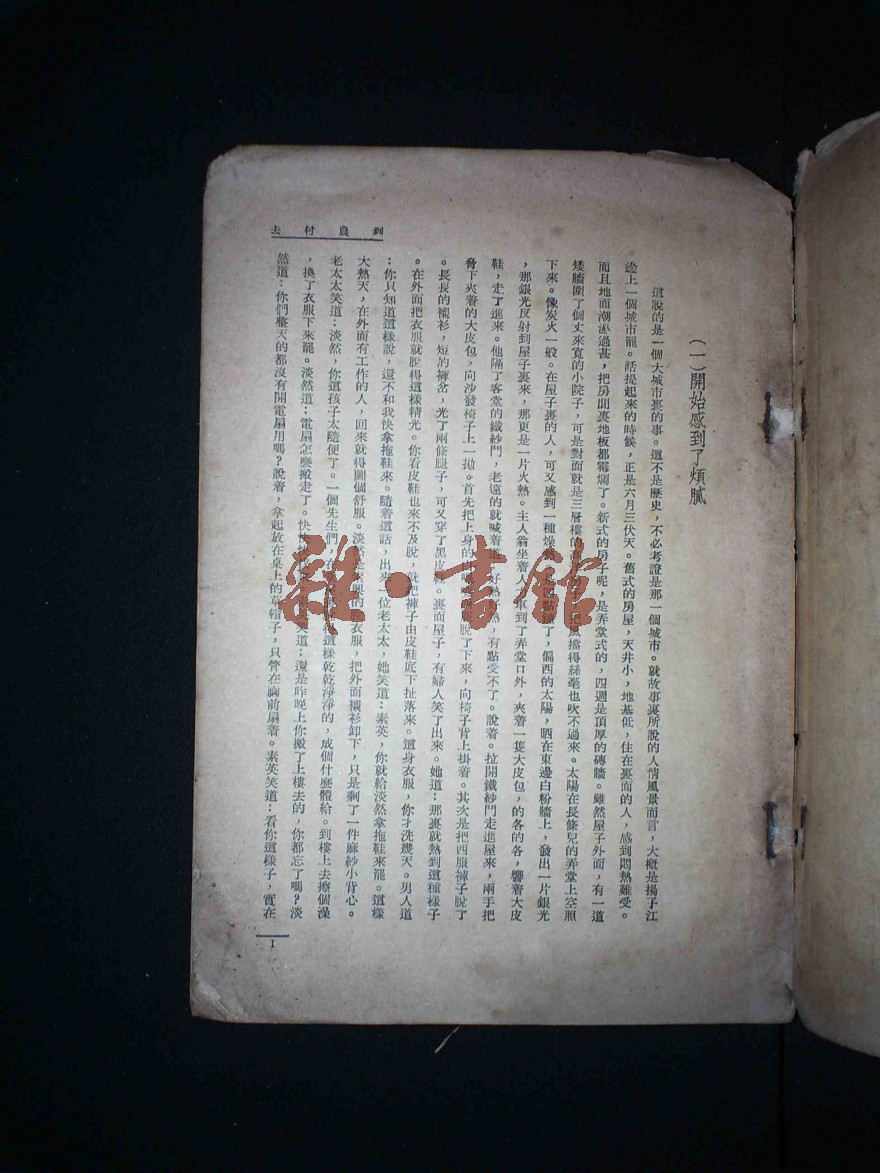 到農村去
(一)開始感到了煩膩
這說的是一個大城市裏的事。這不是歷史,不必考證是那一個城市。就故事裏所說的人情風景而言,大概是揚子江
邊上一個城市罷。話提起來的時候,正是六月三伏天。舊式的房屋,天井小,地基低,住在裏面的人,感到悶熱難受。
而且地面潮濕過甚,把房間裏地板都霉爛了。新式的房子呢,是弄堂式的,四週是頂厚的磚牆。雖然屋子外面,有一道
矮牆圍了個丈來寬的小院子,可是對面就是三層樓的 把風擋得絲毫也吹不過來。太陽在長條兒的弄堂上空照
下來。像炭火一般。在屋子裏的人,可又感到一種燥 點 了,偏西的太陽,晒在東邊白粉牆上,發出一片銀光
,那銀光反射到屋子裏來,那更是一片火熱。主人翁坐着人 車到了弄堂口外,夾着一隻大皮包,的各的各,響着大皮
鞋,走了進來。他隔了客堂的鐵紗門,老遠的就喊着道:好熱 熱,有點受不了。說着。拉開鐵紗門走進屋來,兩手把
脅下夾着的大皮包,向沙發椅子上一拋。首先把上身的 脫了下來,向椅子背上掛着。其次是把西服褲子脫了
。長長的襯衫,短的褲岔,光了兩條腿子,可又穿了黑皮鞋。裏面屋子,有婦人笑了出來。她道:那裏就熱到這種樣子
。在外面把衣服就脫得這樣精光。你看皮鞋也來不及脫,就把褲子由皮鞋底下扯落來。這身衣服,你才洗幾天。男人道
:你只知道這樣說,還不和我快拿拖鞋來。隨着這話,出來一位老太太,她笑道:素英,你就給淡然拿拖鞋來罷。這樣
大熱天,在外面有工作的人,回來就得圖個舒服。淡然 的脫衣服,把外面襯衫卸下,只是剩了一件麻紗小背心。
老太太笑道:淡然,你這孩子太隨便了。一個先生們,在 這樣乾乾淨淨的,成個什麼體給。到樓上去擦個澡
,換了衣服下來罷。淡然道:電扇怎麼搬走了。快 笑道:還是昨晚上你搬了上樓去的,你都忘了嗎?淡
然道:你們整天的都沒有開電扇用嗎?說着,拿起放在桌上的草帽子,只管在胸前扇着。素英笑道:看你這樣子,實在
1
雜·書館